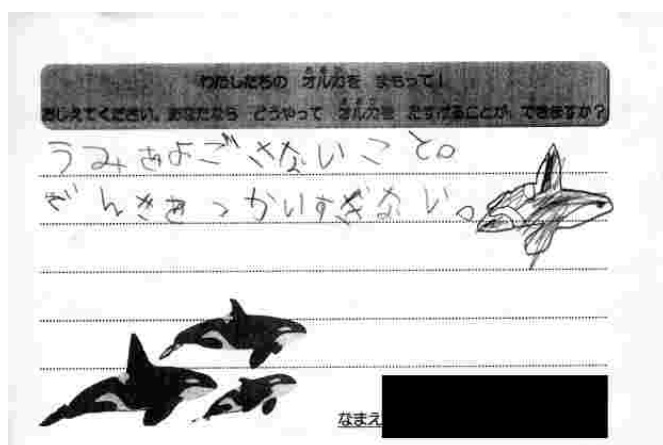 わたしたちの オルカを まもって!
おしえてください。あなたなら どうやって オルカを たすけることが、できますか?
うみをよごさないこと。
でんきをつかいすぎない。
なまえ